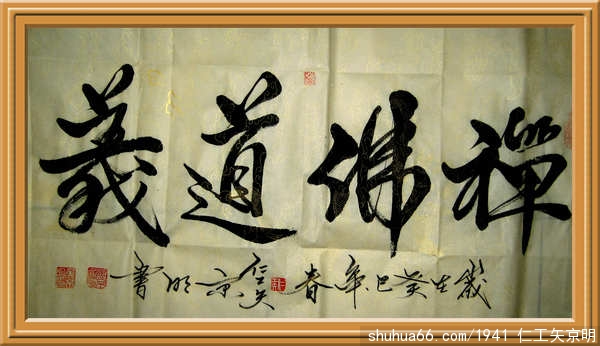 禪佛道義
歲在癸巳年春仁工矢京明書
shuhua66.com/1941 仁工矢京明